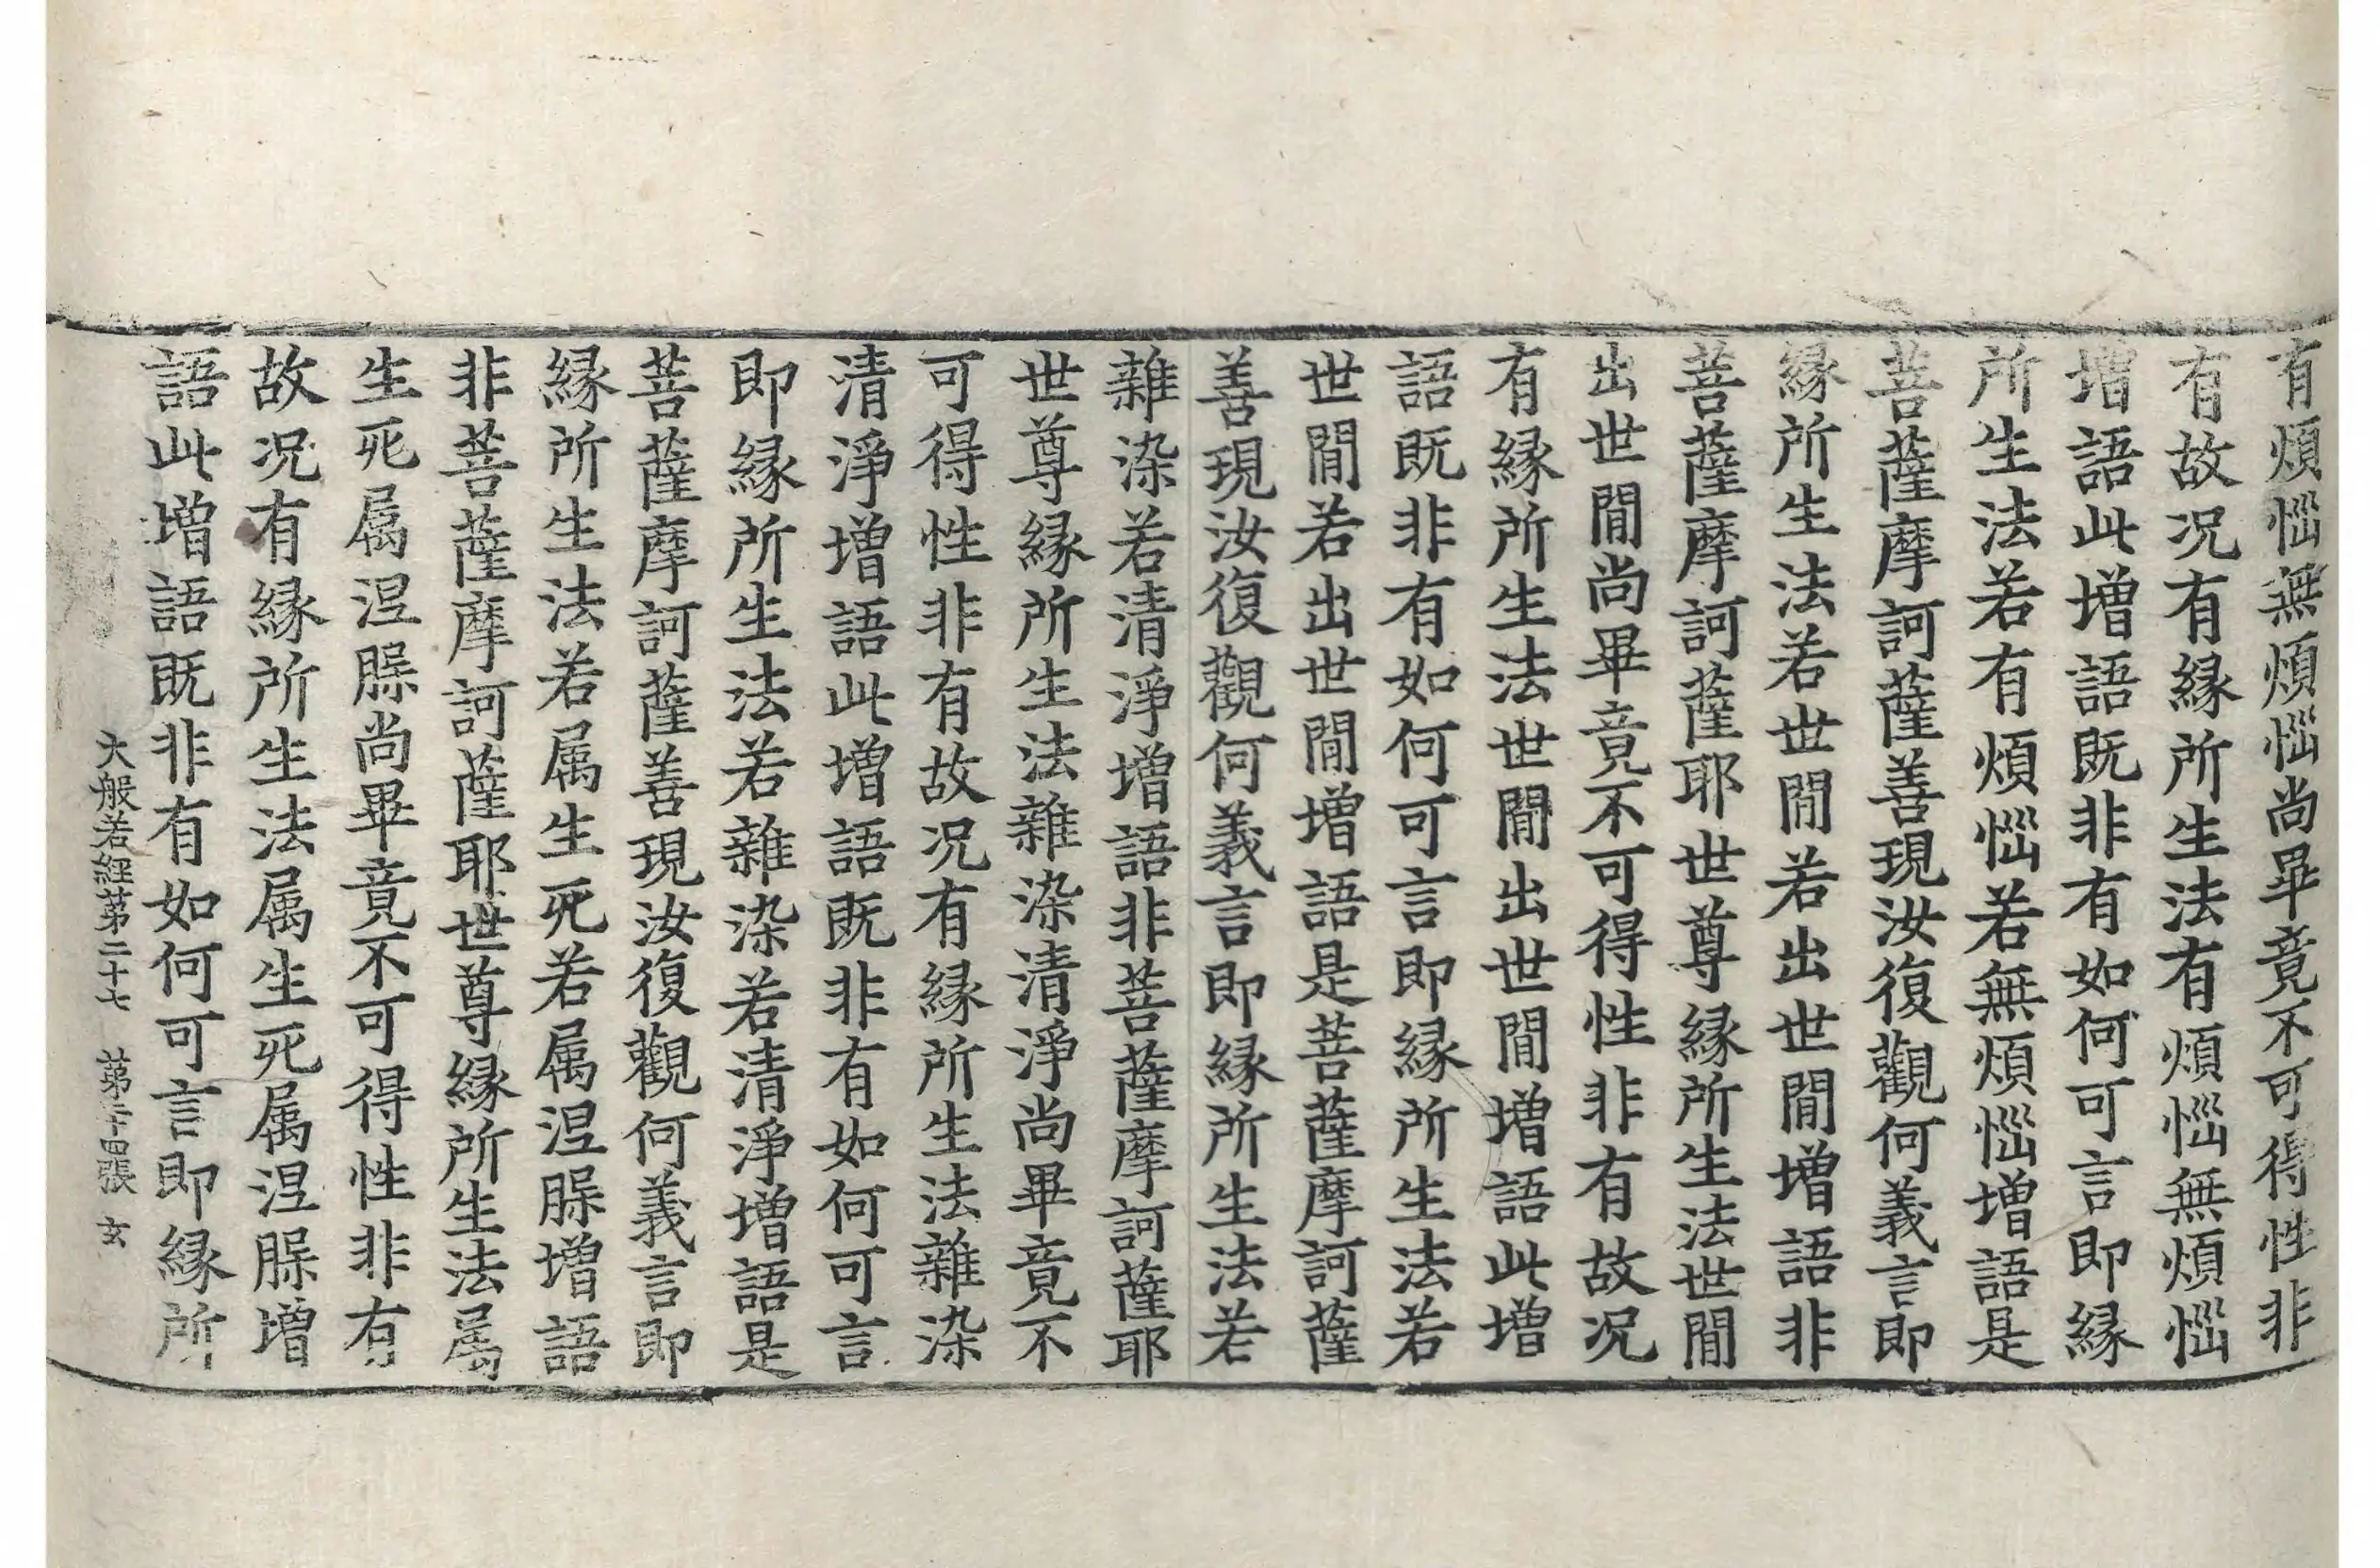 有煩惱無煩惱尚畢竟不可得性非
有故况有縁所生法有煩惱無煩惱
增語此增語既非有如何可言即縁
所生法若有煩惱若無煩惱增語是
菩薩摩訶薩善現汝復觀何義言即
縁所生法若世閒若出世閒增語非
菩薩摩訶薩耶世尊縁所生法世閒
出世閒尚畢竟不可得性非有故况
有縁所生法世閒出世閒增語此增
語既非有如何可言即縁所生法若
世閒若出世閒增語是菩薩摩訶薩
善現汝復觀何義言即縁所生法若
雜染若清淨增語非菩薩摩訶薩耶
世尊縁所生法雜染清淨尚畢竟不
可得性非有故况有縁所生法雜染
清淨增語此增語既非有如何可言
即縁所生法若雜染若清淨增語是
菩薩摩訶薩善現汝復觀何義言即
縁所生法若属生死若属涅槃增語
非菩薩摩訶薩耶世尊縁所生法属
生死属涅槃尚畢竟不可得性非有
故况有縁所生法属生死属涅槃增
語此增語既非有如何可言即縁所
大般若經苐二十七 苐二十四張 玄